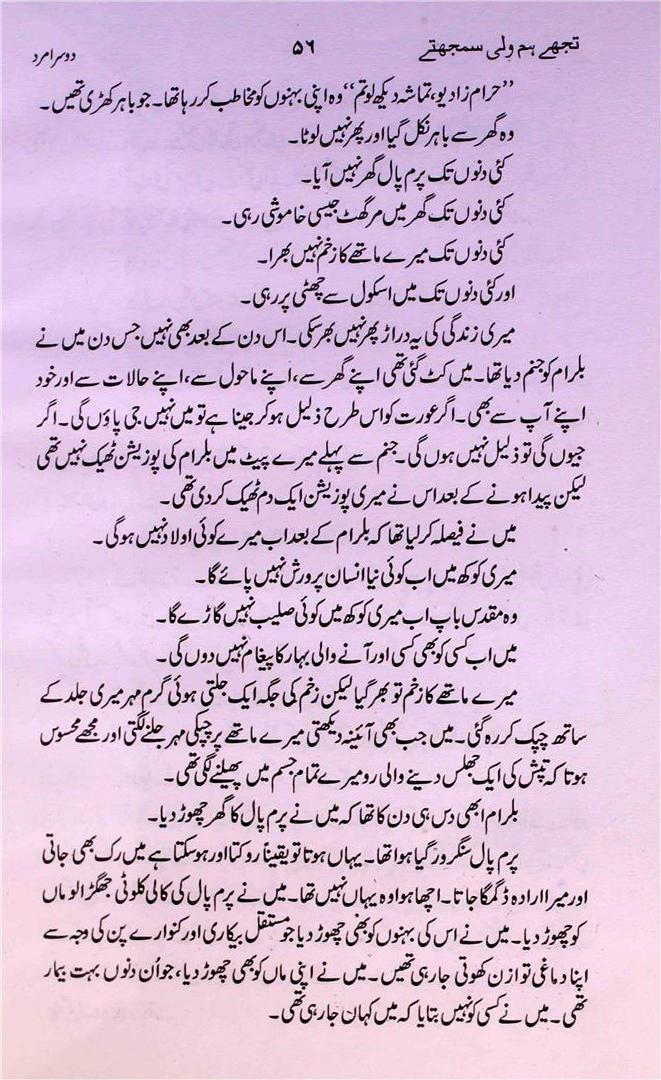 تجھے ہم ولی سمجھتے ۵۶ دوسرا مرد
”حرام زادیو، تماشہ دیکھ لو تم“ وہ اپنی بہنوں کو مخاطب کر رہا تھا۔ جو باہر کھڑی تھیں۔
وہ گھر سے باہر نکل گیا اور پھر نہیں لوٹا۔
کئی دنوں تک پرم پال گھر نہیں آیا۔
کئی دنوں تک گھر میں مرگھٹ جیسی خاموشی رہی۔
کئی دنوں تک میرے ماتھے کا زخم نہیں بھرا۔
اور کئی دنوں تک میں اسکول سے چھٹی پر رہی۔
میری زندگی کی یہ دراڑ پھر نہیں بھر سکی۔ اس دن کے بعد بھی نہیں جس دن میں نے
بلرام کو جنم دیا تھا۔ میں کٹ گئی تھی اپنے گھر سے، اپنے ماحول سے، اپنے حالات سے اور خود
اپنے آپ سے بھی۔ اگر عورت کو اس طرح ذلیل ہو کر جینا ہے تو میں نہیں جی پاؤں گی۔ اگر
جیوں گی تو ذلیل نہیں ہوں گی۔ جنم سے پہلے میرے پیٹ میں بلرام کی پوزیشن ٹھیک نہیں تھی
لیکن پیدا ہونے کے بعد اس نے میری پوزیشن ایک دم ٹھیک کر دی تھی۔
میں نے فیصلہ کر لیا تھا کہ بلرام کے بعد اب میرے کوئی اولاد نہیں ہوگی۔
میری کوکھ میں اب کوئی نیا انسان پرورش نہیں پائے گا۔
وہ مقدس باپ اب میری کوکھ میں کوئی صلیب نہیں گاڑے گا۔
میں اب کسی کو بھی کسی اور آنے والی بہار کا پیغام نہیں دوں گی۔
میرے ماتھے کا زخم تو بھر گیا لیکن زخم کی جگہ ایک جلتی ہوئی گرم مہر میری جلد کے
ساتھ چپک کر رہ گئی۔ میں جب بھی آئینہ دیکھتی میرے ماتھے پر چپکی مہر جلنے لگتی اور مجھے محسوس
ہوتا کہ تپش کی ایک جھلس دینے والی رو میرے تمام جسم میں پھیلنے لگی تھی۔
بلرام ابھی دس ہی دن کا تھا کہ میں نے پرم پال کا گھر چھوڑ دیا۔
پرم پال سنگرور گیا ہوا تھا۔ یہاں ہوتا تو یقیناً روکتا اور ہو سکتا ہے میں رک بھی جاتی
اور میرا ارادہ ڈگمگا جاتا۔ اچھا ہوا وہ یہاں نہیں تھا۔ میں نے پرم پال کی کالی کلوٹی جھگڑالو ماں
کو چھوڑ دیا۔ میں نے اس کی بہنوں کو بھی چھوڑ دیا جو مستقل بیکاری اور کنوارے پن کی وجہ سے
اپنا دماغی توازن کھوتی جا رہی تھیں۔ میں نے اپنی ماں کو بھی چھوڑ دیا، جو اُن دنوں بہت بیمار
تھی۔ میں نے کسی کو نہیں بتایا کہ میں کہاں جا رہی تھی۔